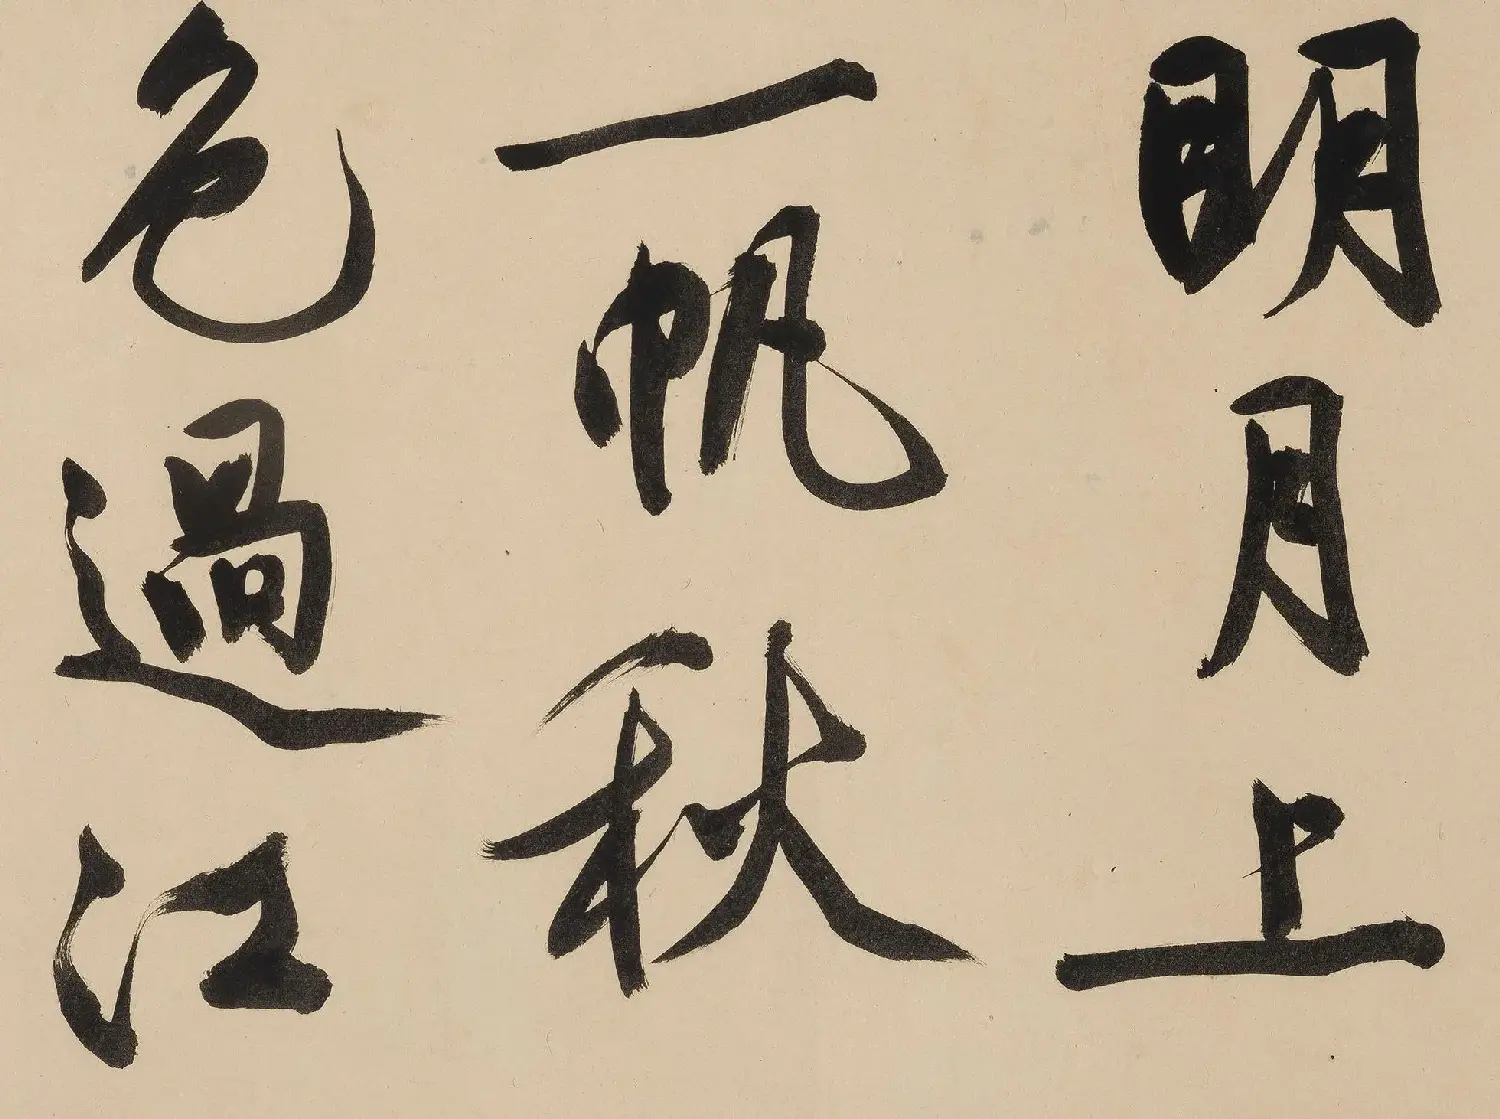 明月上
一帆秋
色過江